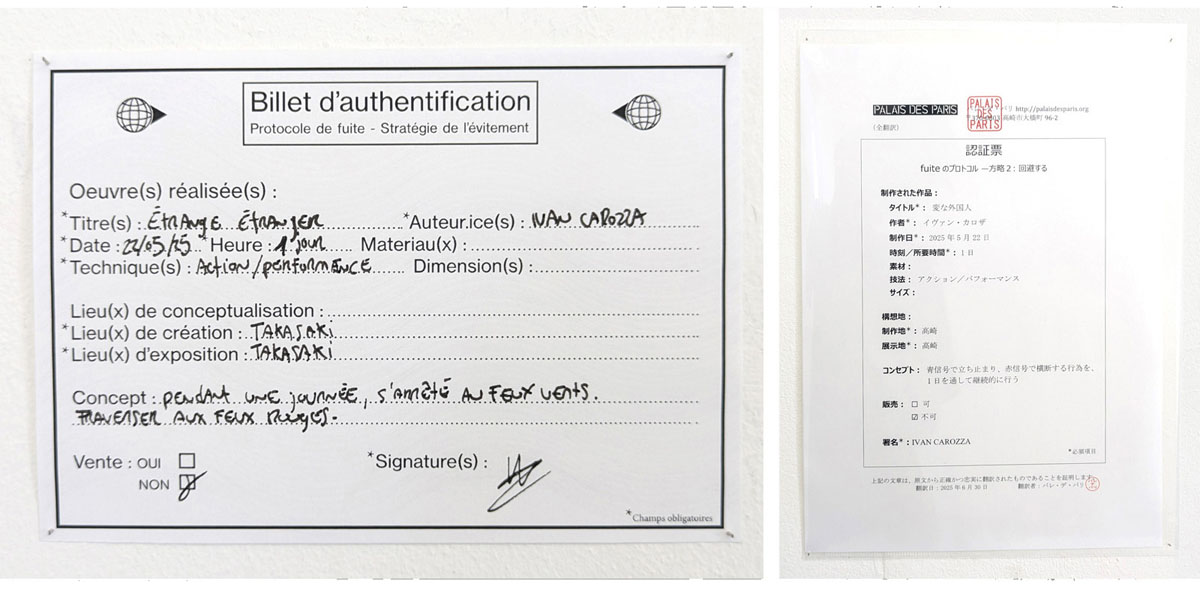 Billet d'authentification
Protocole de fuite - Stratégie de l'évitement
Oeuvre(s) réalisée(s) :
*Titre(s) : ÉTRANGE ÉTRANGER *Auteur.ice(s) : IVAN CAROZZA
*Date : 22/05/25 *Heure : 1 jour Materiau(x) :
*Technique(s) : Action/performence Dimension(s) :
Lieu(x) de conceptualisation :
*Lieu(x) de création : TAKASAKi
*Lieu(x) d'exposition : TAKASAKi
Concept : pendant une journée, s'arrêté au feux verts.
Traverser aux feux rouges.
Vente : OUI
NON
*Signature(s) :
*Champs obligatoires
PALAIS DES PARIS
PALAIS
DES
PARIS
http://palaisdesparis.org
高崎市大橋町 96-2
(全翻訳)
認証票
fuite のプロトコル ー方略 2：回避する
制作された作品：
タイトル*： 変な外国人
作者*： イヴァン・カロザ
制作日*： 2025 年 5 月 22 日
時刻／所要時間*： 1 日
素材：
技法： アクション／パフォーマンス
サイズ：
構想地：
制作地*： 高崎
展示地*： 高崎
コンセプト： 青信号で立ち止まり、赤信号で横断する行為を、
１日を通して継続的に行う
販売： ☐ 可
☑ 不可
署名*：IVAN CAROZZA
*必須項目
上記の文章は、原文から正確かつ忠実に翻訳されたものであることを証明します
翻訳日：2025 年 6 月 30 日 翻訳者：パレ・デ・パリ